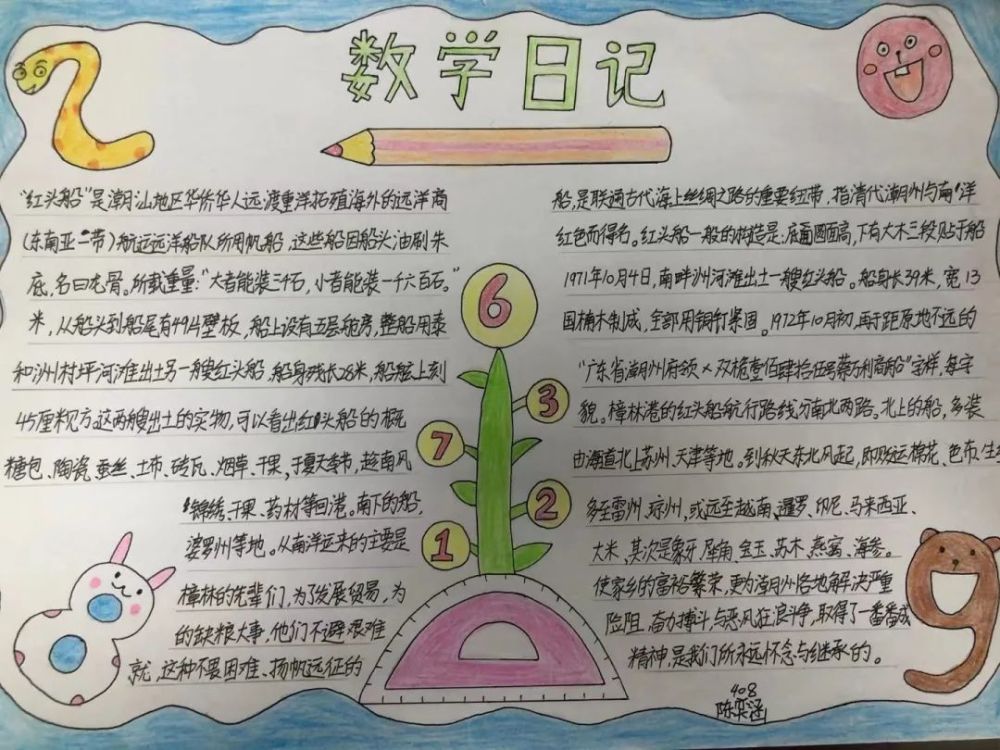 数学日记
“红头船”是潮汕地区华侨华人远渡重洋拓殖海外的远洋商船,是联通古代海上丝绸之路的重要纽带,指清代潮州与南洋
(东南亚一带)航运远洋船队所用帆船,这些船因船头油刷朱红色而得名。红头船一般的构造是:底窗圆面高,下有大木三段贴于船
底,名曰龙骨。所载重量:“大者能装三千石,小者能装一千六百石。”1971年10月4日,南畔洲河滩出土一艘红头船。船身长39米,宽13
6
米,从船头到船尾有49片壁板,船上设有五层舱房,整船用泰国楠木制成,全部用铜钉紧固。1972年10月初,再于距原地不远的
和洲村坪河滩出土另一艘红头船,船身残长28米,船舷上刻“广东省潮州府领×双桅壹佰肆拾伍号蔡万利商船”字样,每字
3
45厘米见方。这两艘出土的实物,可以看出红头船的概貌。樟林港的红头船航行路线分南北两路。北上的船,多装
7
糖包、陶瓷、蚕丝、土布、砖瓦、烟草、干果、于夏天季节,趁南风由海道北上苏州、天津等地。到秋天东北风起,即贩运棉花、色布、生
锦绣、干果、药材等回港。南下的船,多至雷州、琼州,或远至越南、暹罗、印尼、马来西亚、
2
婆罗州等地。从南洋运来的主要是大米,其次是象牙、犀角、宝玉、苏木、燕窝、海参。
1
樟林的先辈们,为了发展贸易,为使家乡的富裕繁荣,更为潮州各地解决严重
的缺粮大事,他们不避艰难险阻,奋力搏斗,与恶风狂浪斗争,取得了一番番成
就,这种不畏困难、扬帆远征的精神,是我们所永远怀念与继承的。
408
陈奕涵